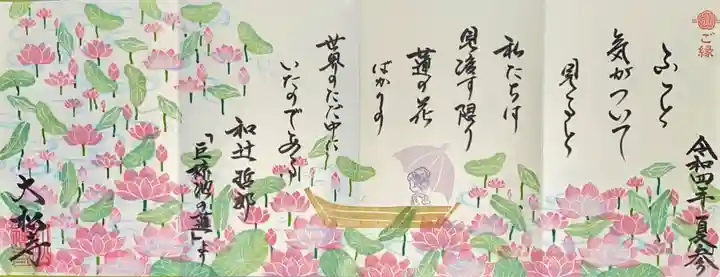 ご縁
ふと
気がついて
見ると
私たちは
見渡す限り
蓮の花
ばかりの
世界のただ中に
いたのである
和辻哲郎
「巨椋池の蓮」より
令和四年夏参
大松寺